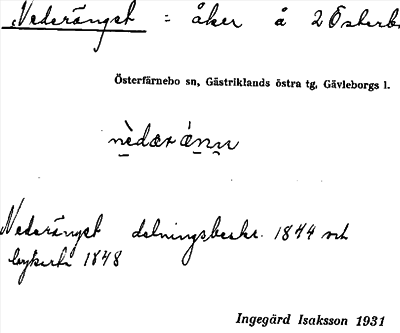 Nederängst = åker å 2 Österb
Österfärnebo sn, Gästriklands östra tg, Gävleborgs l.
Nederängst delningsbeskr. 1844 och
1848
Ingegärd Isaksson 1931